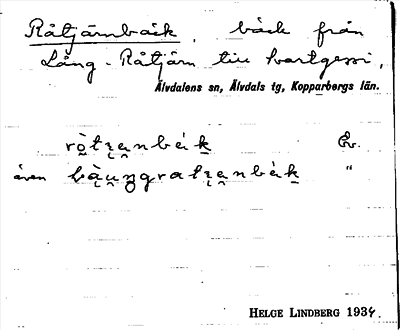 Råtjärnbäck, bäck från
Lång-Råtjärn till Svartgessi,
Älvdalens sn, Älvdals tg, Kopparbergs län.
Ev.
även "
HELGE LINDBERG 1934.